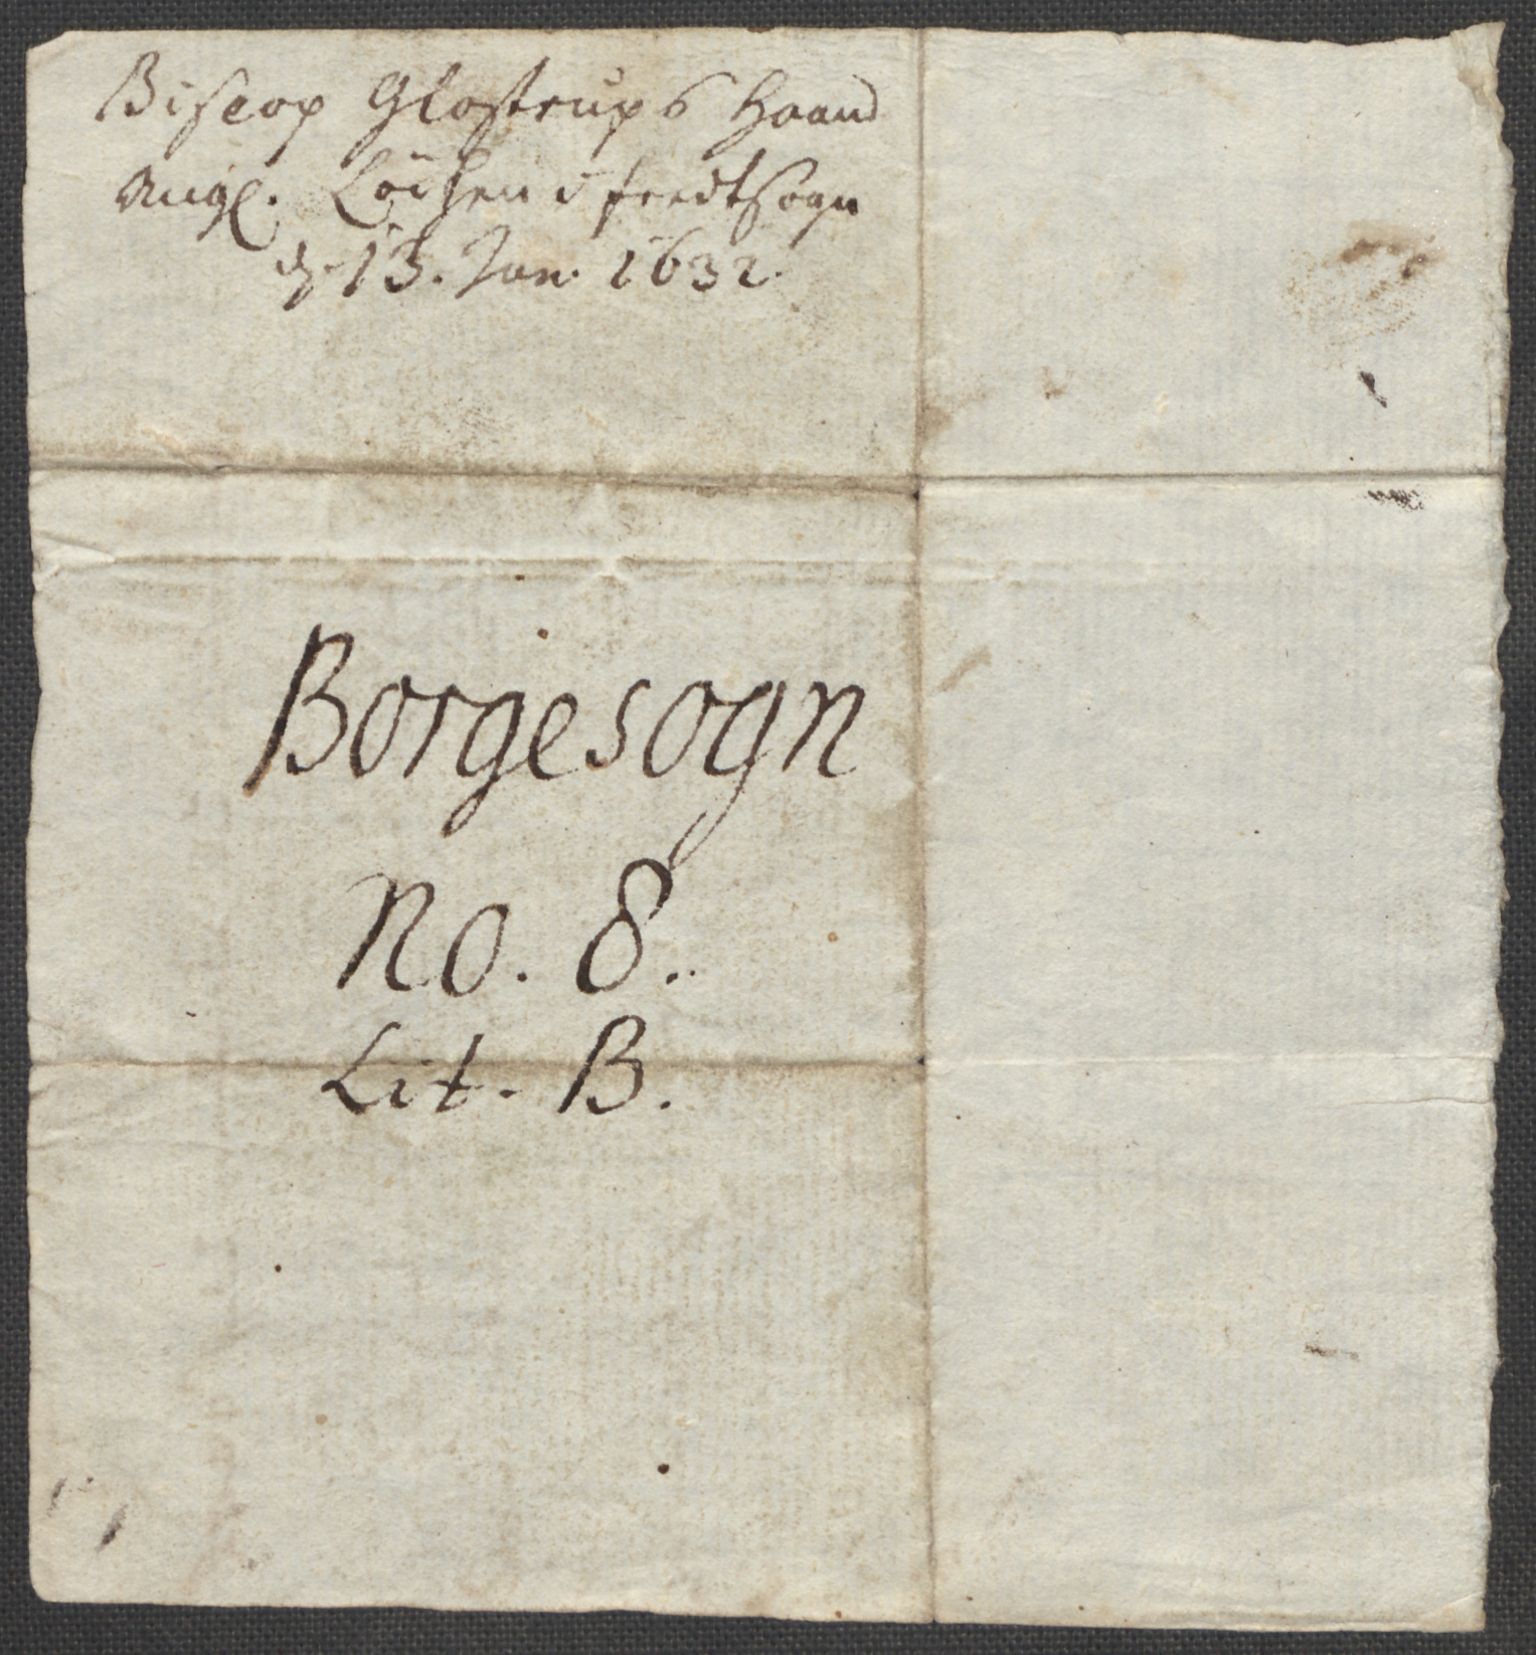 Biscop Glostrups Haand
Angl. Löchen i feedt Sogn
d. 13. Jan. 1632.
Borgesogn
No. 8.
Lit. B.